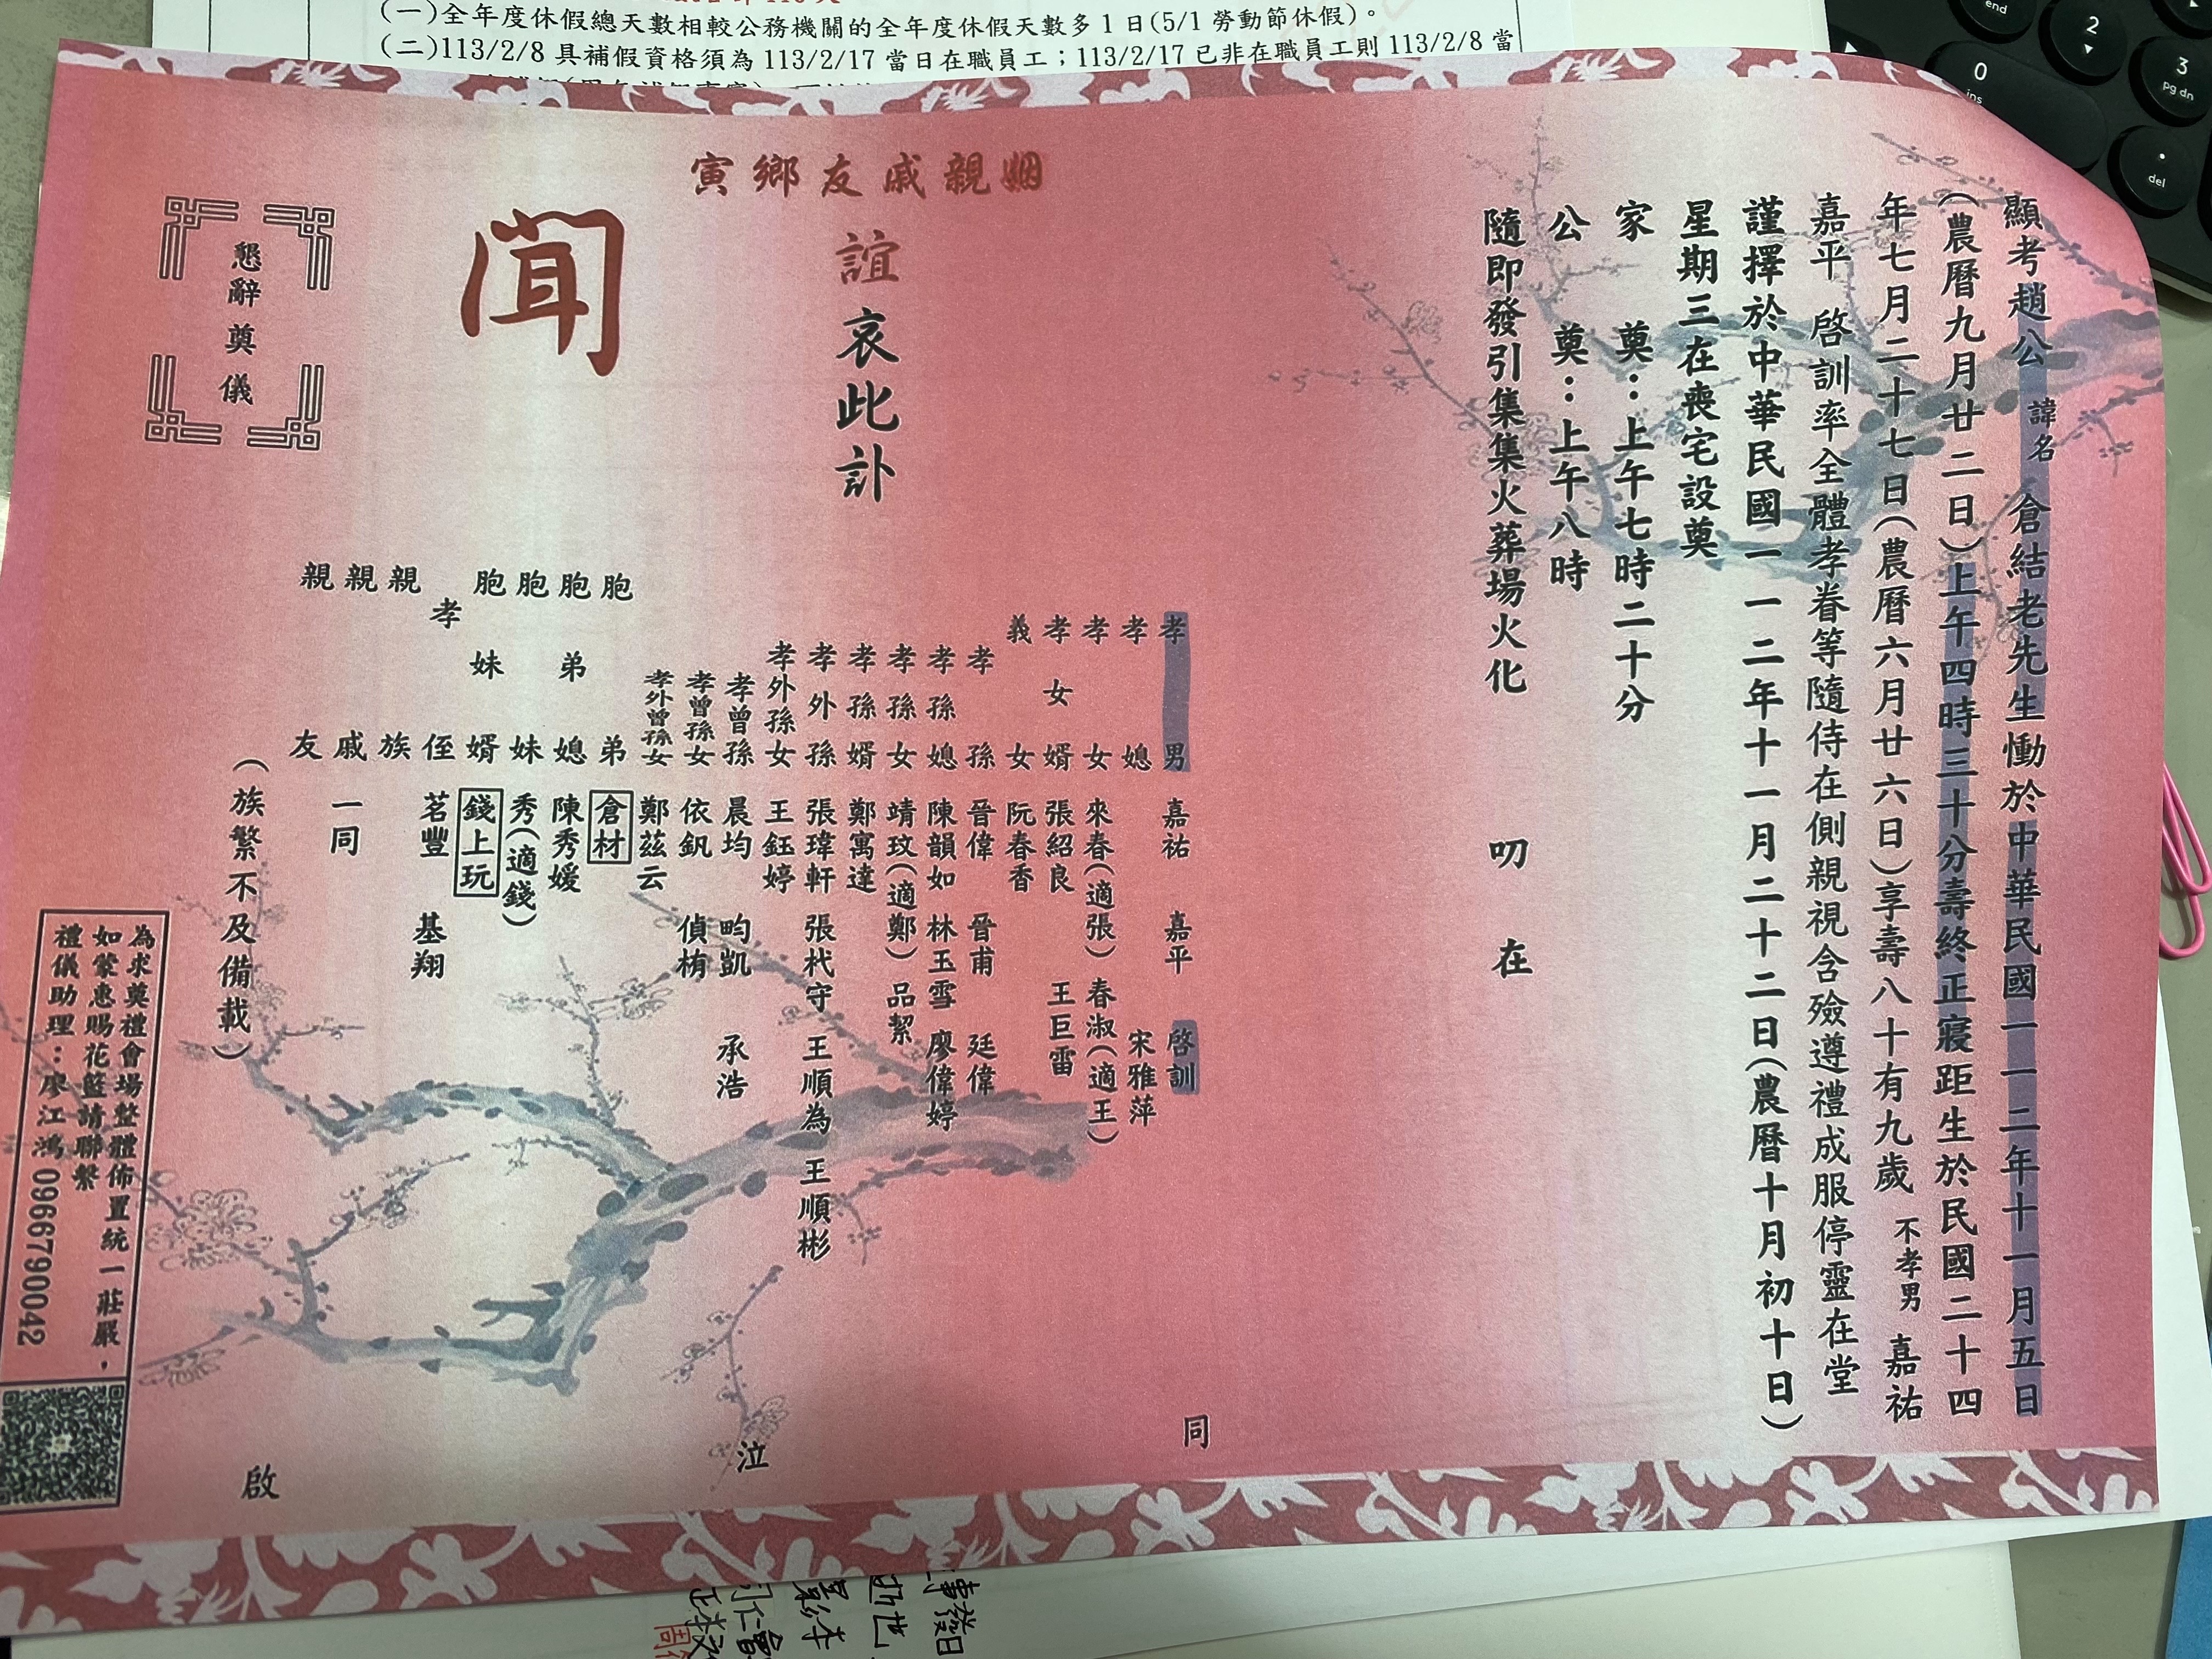 (一)全年度休假總天數相較公務機關的全年度休假天數多1日(5/1勞動節休假)。
(二)113/2/8具補假資格須為113/2/17當日在職員工；113/2/17已非在職員工則113/2/8當
end
2
3
pg dn
0
ins
.
del
顯考趙公諱名倉結老先生慟於中華民國一一二年十一月五日
(農曆九月廿二日)上午四時三十分壽終正寢距生於民國二十四
年七月二十七日(農曆六月廿六日)享壽八十有九歲不孝男嘉祐
嘉平 啓訓率全體孝眷等隨侍在側親視含殮遵禮成服停靈在堂
謹擇於中華民國一一二年十一月二十二日(農曆十月初十日)
星期三在喪宅設奠
家奠：上午七時二十分
公奠：上午八時
隨即發引集集火葬場火化 叨在
寅鄉友戚親姻
誼哀此訃
聞
懇辭奠儀
孝男 嘉祐 嘉平 啓訓
孝媳 宋雅萍
孝女 來春(適張) 春淑(適王)
孝女婿 張紹良 王巨雷
義女 阮春香
孝孫 晉偉 晉甫 廷偉
孝孫媳 陳韻如 林玉雪 廖偉婷
孝孫女 靖玟(適鄭) 品絜
孝孫婿 鄭寓達
孝外孫 張瑋軒 張杙守 王順為 王順彬
孝外孫女 王鈺婷
孝曾孫 晨均 畇凱 承浩
孝曾孫女 依釩 偵栯
孝外曾孫女 鄭茲云
胞弟 倉材
胞弟媳 陳秀媛
胞妹 秀(適錢)
胞妹婿 錢上玩
孝侄 茗豐 基翔
親族
親戚 一同
親友
(族繁不及備載)
同
泣
啟
為求奠禮會場整體佈置統一莊嚴，
如蒙惠賜花籃請聯繫
禮儀助理：廖江鴻 0966790042